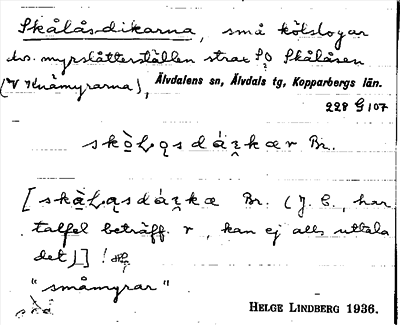 Skålåsdikarna, små kölslogar
o. myrslåtterställen strax SO Skålåsen
(V Knåmyrarna),
Älvdalens sn, Älvdals tg, Kopparbergs län.
228 G 107
Br.
Br. (J. E., har
talfel beträff. r, kan ej alls uttala
det)] !
"småmyrar"
HELGE LINDBERG 1936.